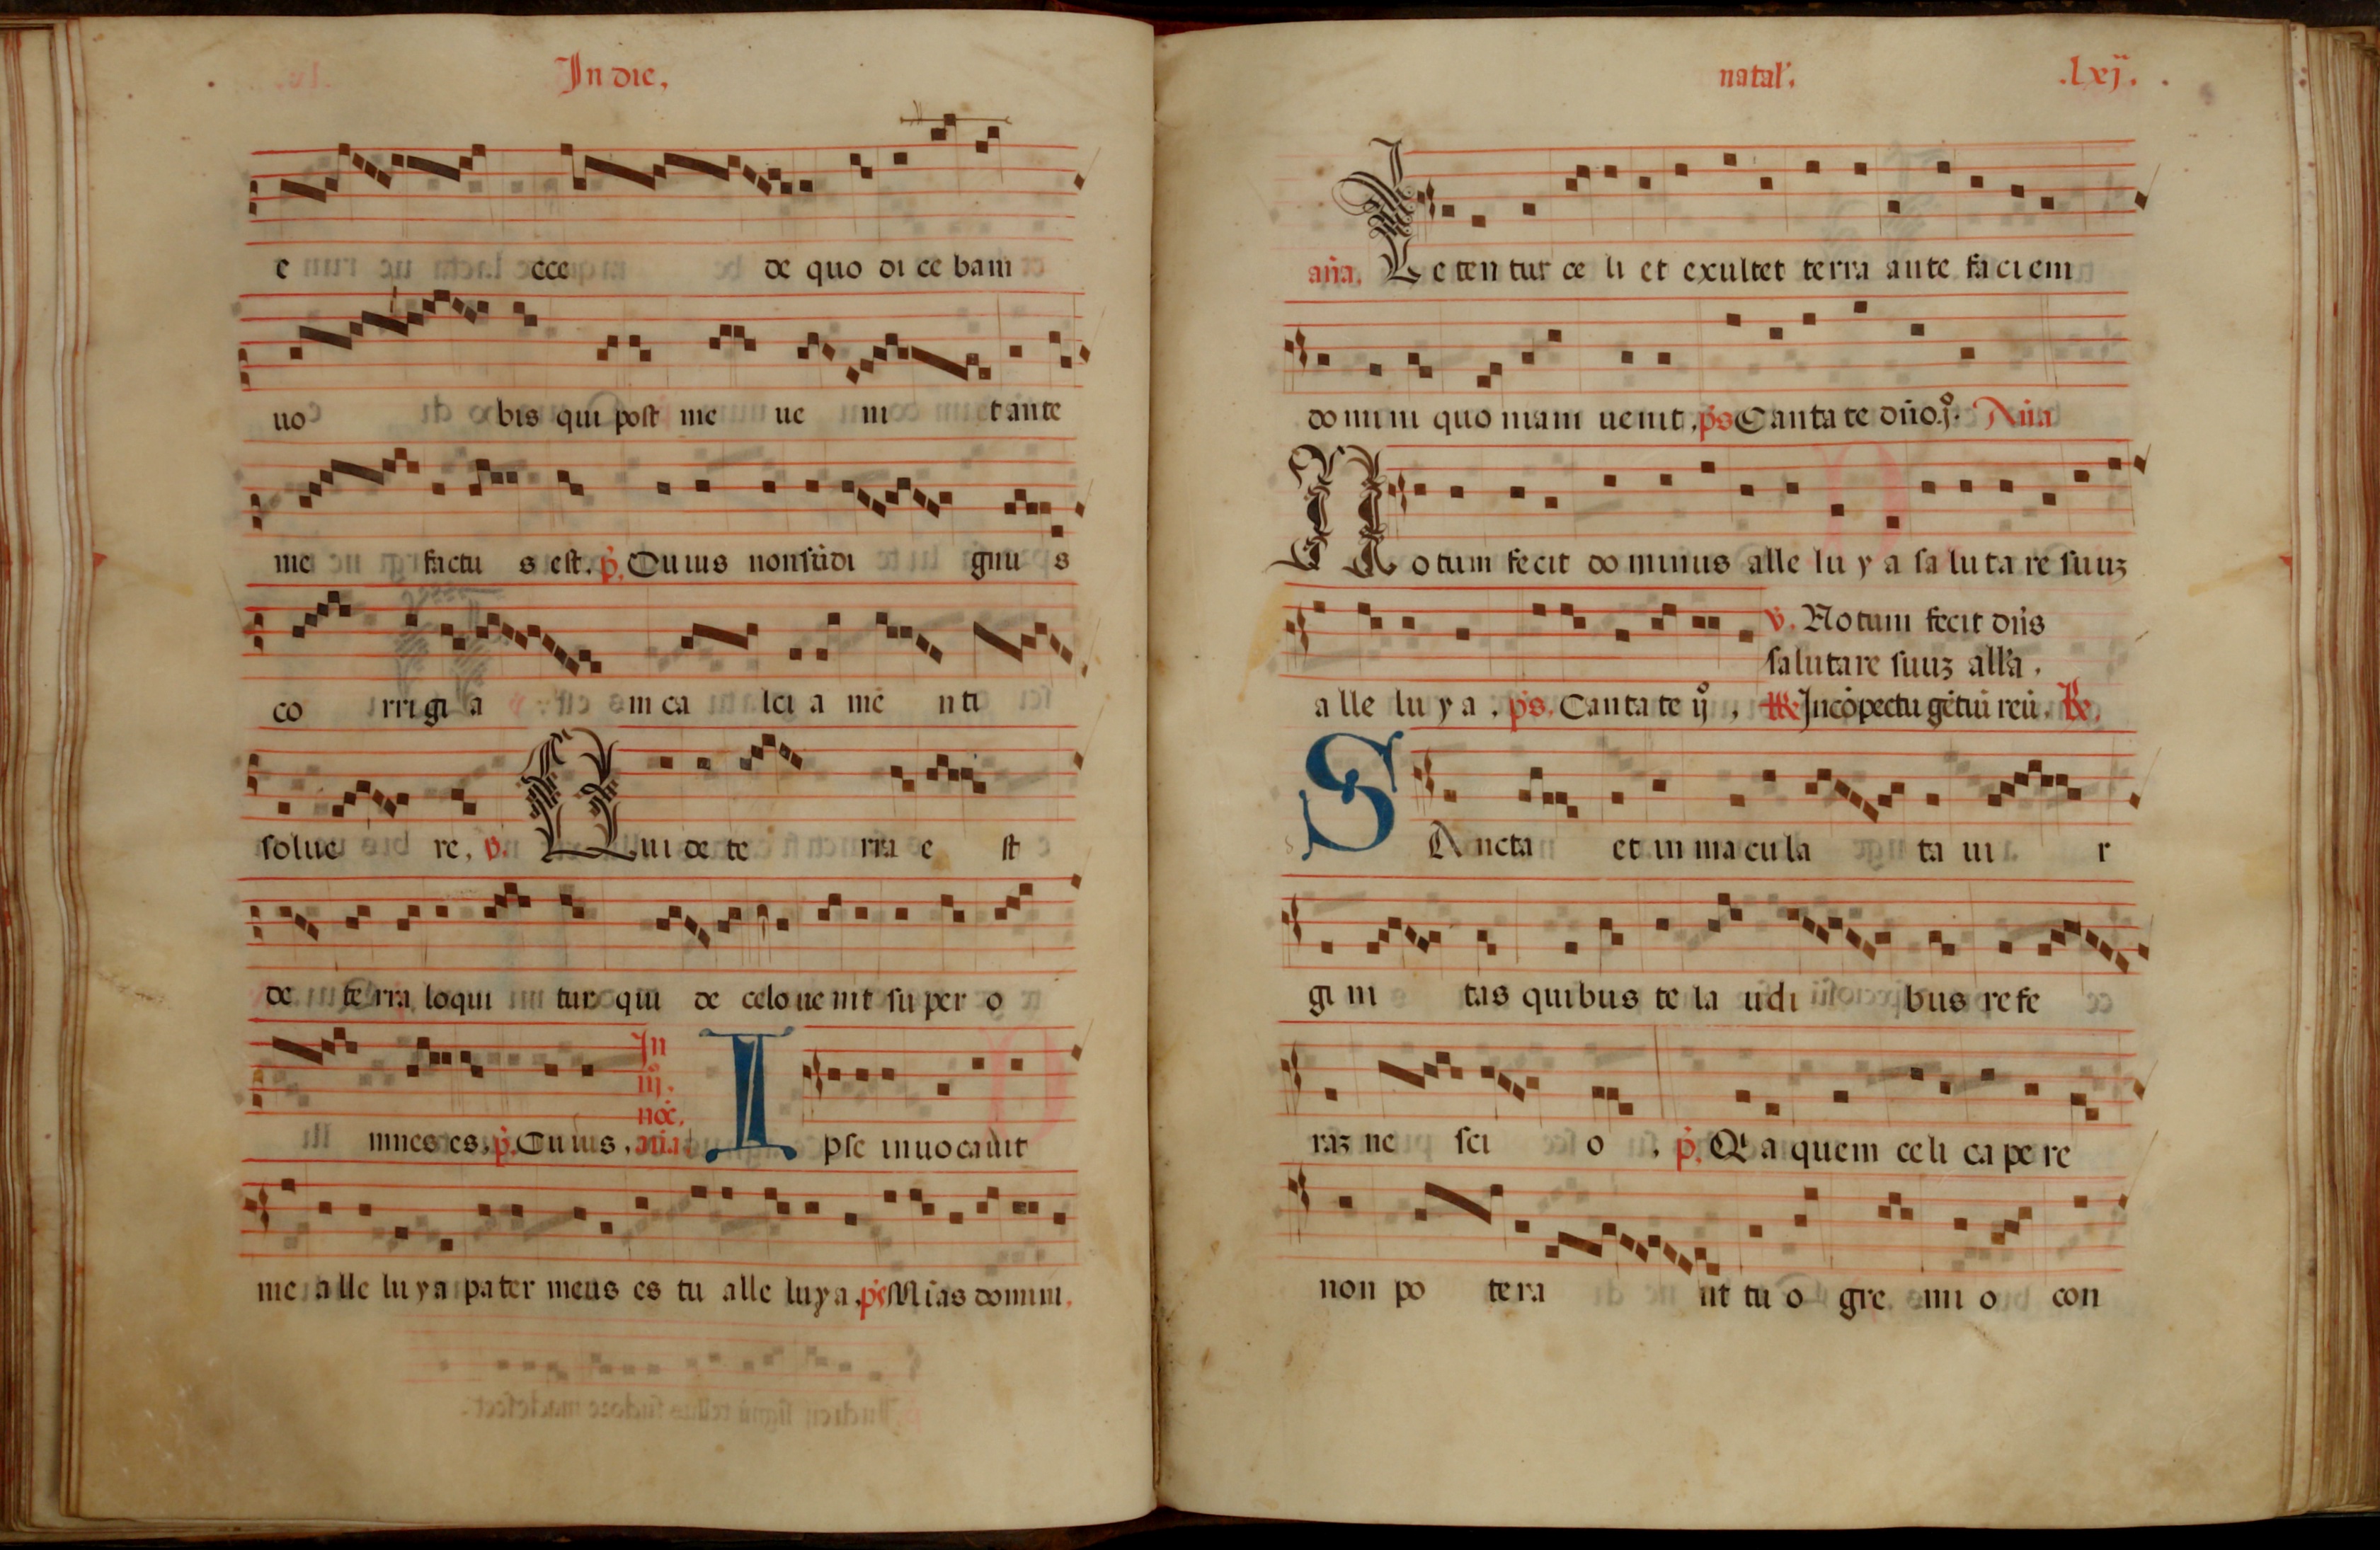 In die.
e cce de quo di ce bam
uo bis qui post me ue ni t ante
me factu s est. p̃. Cu ius non sũ di gnu s
co rrigi a m ca lci a me nti
solue re. v. Qui de te rra e st
de te rra loqui tur qui de celo ue nit su per o
mnes es. p̃. Cu ius. 
In iij. noc̃. añã. I pse inuocauit
me alle lu ya pater meus es tu alle luya. ps̃ Mĩas domini.
natal'. .lxij.
añã. Le ten tur ce li et exultet terra ante faciem
do mi ni quo niam uenit. ps̃ Canta te dño. j̊. Añã
N otum fecit do minus alle lu y a sa lu ta re suuʒ
v. Notum fecit dñs
salutare suuʒ all'a.
a lle lu y a. ps̃. Canta te ij̊.
In cõspectu gẽtiũ reũ. ℞.
S A ncta et in macu la ta ui r
gi ni tas quibus te la udi bus re fe
raʒ ne sci o. p̃. Q̃ a quem celi ca pe re
non po te ra nt tu o gre mi o con